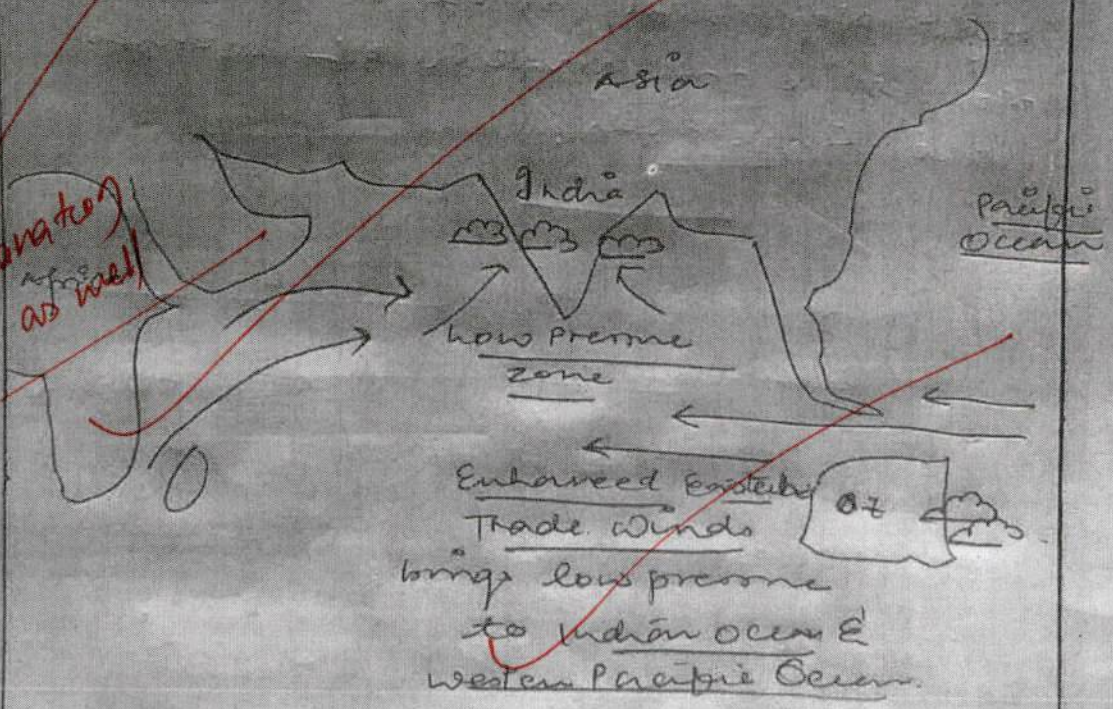 Asia
India
Pacific
Ocean
as well
Low Pressure
Zone
OZ
Enhanced
Trade Winds
brings low pressure
to Indian Ocean &
Western Pacific Ocean.